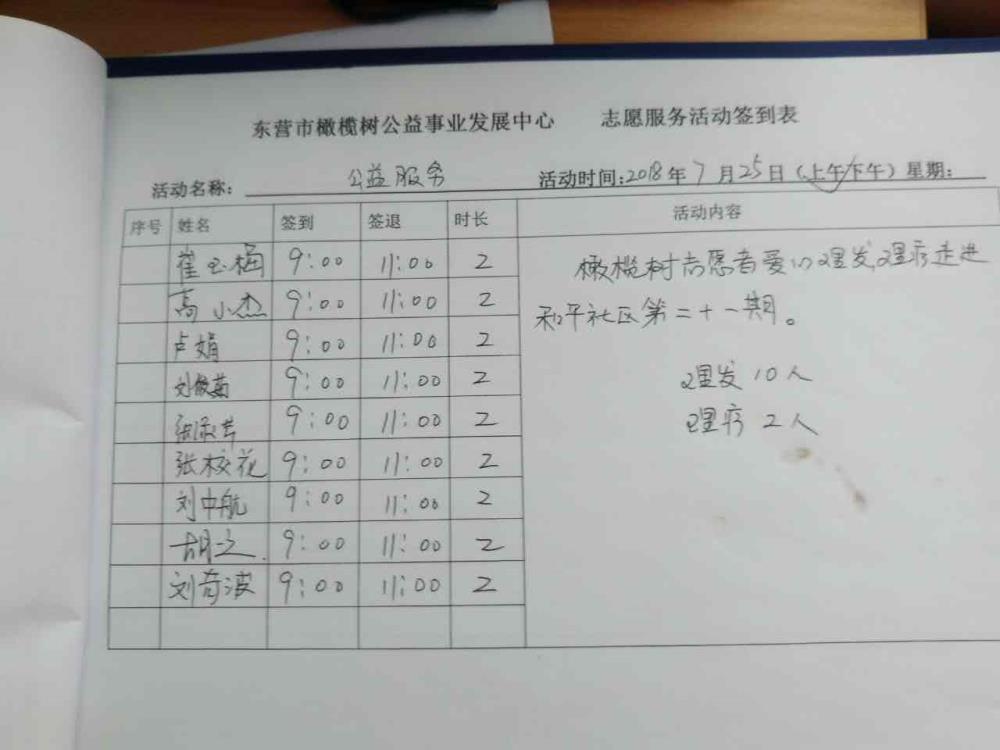 东营市橄榄树公益事业发展中心 志愿服务活动签到表
活动名称： 公益服务 活动时间:2018年7月25日（上午/下午）星期：
序号 姓名 签到 签退 时长 活动内容
崔玉梅 9:00 11:00 2
高小杰 9:00 11:00 2
卢娟 9:00 11:00 2
刘俊菊 9:00 11:00 2
9:00 11:00 2
张校花 9:00 11:00 2
刘中航 9:00 11:00 2
9:00 11:00 2
刘奇波 9:00 11:00 2
橄榄树志愿者爱心理发,理疗走进
和平社区第二十一期。
理发10人
理疗2人